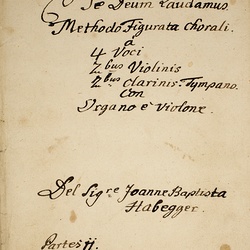 Te Deum Laudamus.
Methodo Figurata Chorali.
a
4 Voci
2bus Violinis
2bus Clarinis. Tympano.
Con
Organo è Violone.
Del Sigre Joanne Baptista
Habegger.
Partes 11.